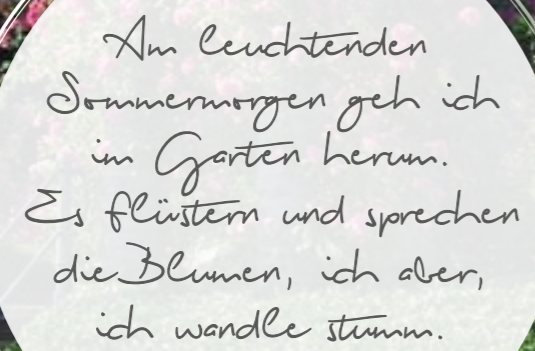 Am leuchtenden
Sommermorgen geh ich
im Garten herum.
Es flüstern und sprechen
die Blumen, ich aber,
ich wandle stumm.